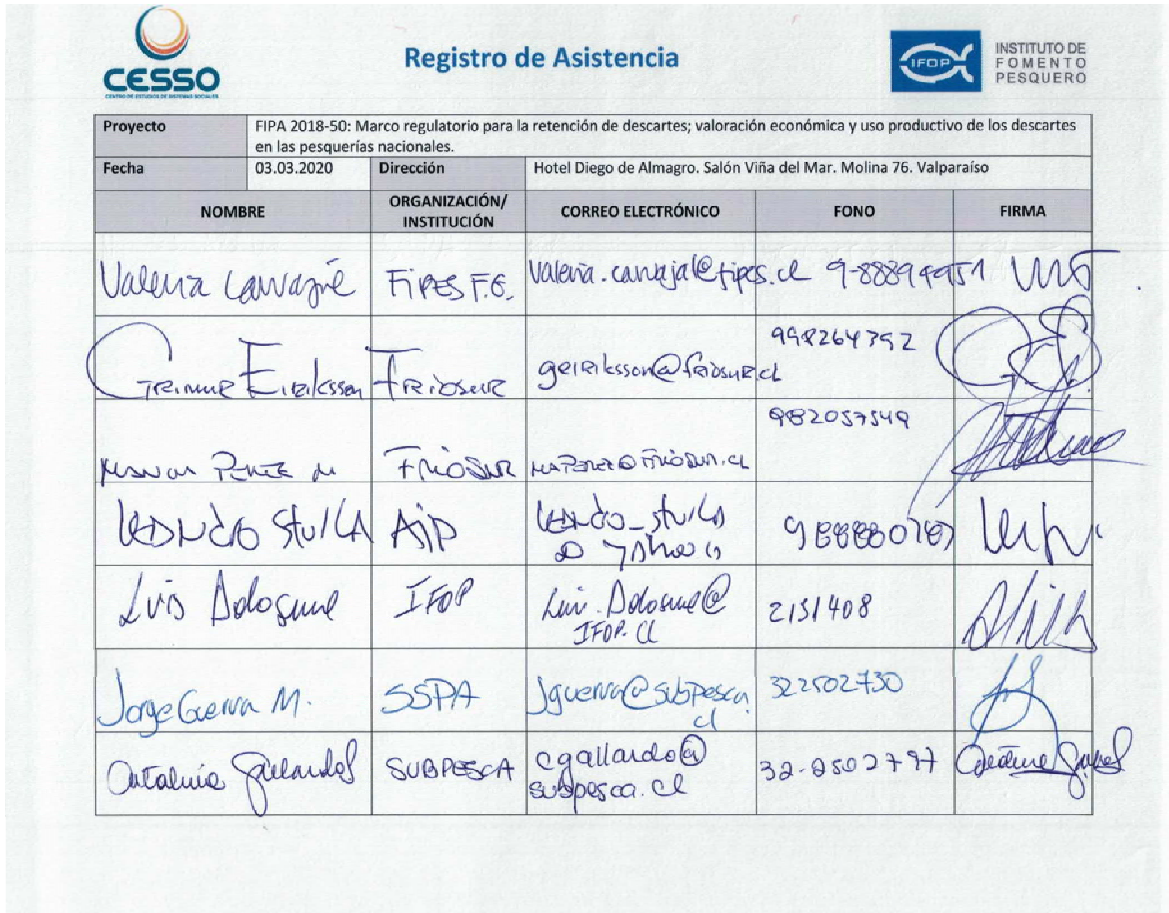 CESSO
CENTRO DE ESTUDIOS DE SISTEMAS SOCIALES
Registro de Asistencia
IFOP
INSTITUTO DE
FOMENTO
PESQUERO
Proyecto FIPA 2018-50: Marco regulatorio para la retención de descartes; valoración económica y uso productivo de los descartes
en las pesquerías nacionales.
Fecha 03.03.2020 Dirección Hotel Diego de Almagro. Salón Viña del Mar. Molina 76. Valparaíso
NOMBRE ORGANIZACIÓN/ CORREO ELECTRÓNICO FONO FIRMA
INSTITUCIÓN
Valeria Carvajal FIPES F.G. valeria.carvajal@fipes.cl 9-88894951
998264392
Grimur Eiriksson FRIOSUR geiriksson@friosur.cl
982057549
Perez FRIOSUR maperez@friosur.cl
Leandro Sturla AIP
988880787
Luis Adasme IFOP Luis.Adasme@ 2151408
IFOP.cl
Jorge Guerra M. SSPA Jguerra@subpesca. 322502730
cl
Gallardo SUBPESCA cgallardo@ 32-2502797
subpesca.cl